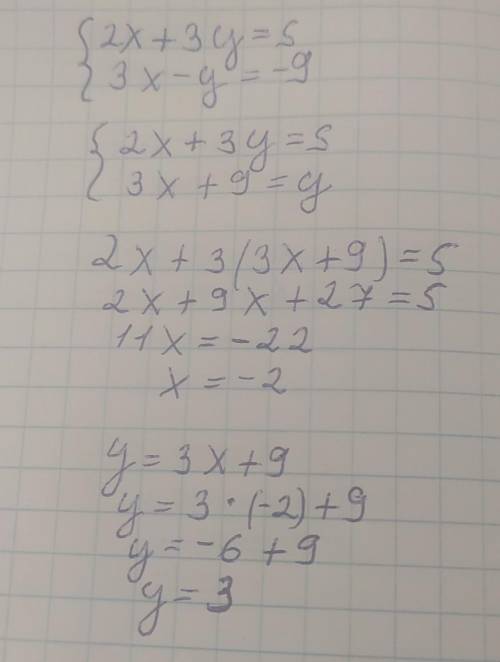 2x+3y=5
3x-y=-9
2x+3y=5
3x+9=y
2x+3(3x+9)=5
2x+9x+27=5
11x=-22
x=-2
y=3x+9
y=3·(-2)+9
y=-6+9
y=3